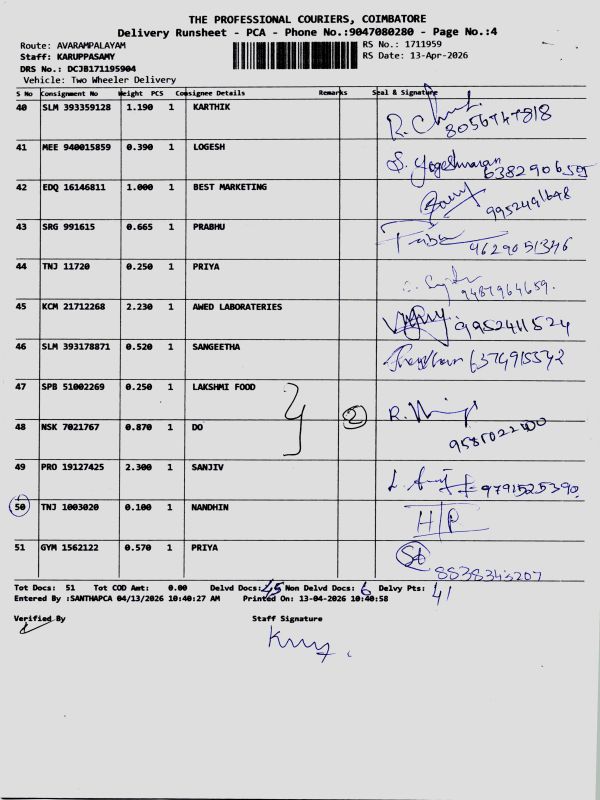 THE PROFESSIONAL COURIERS, COIMBATORE
Delivery Runsheet - PCA - Phone No.:9047080280 - Page No.:4
Route: AVARAMPALAYAM RS No.: 1711959
Staff: KARUPPASAMY RS Date: 13-Apr-2026
DRS No.: DCJB171195904
Vehicle: Two Wheeler Delivery
S No Consignment No Weight PCS Consignee Details Remarks Seal & Signature
40 SLM 393359128 1.190 1 KARTHIK
8056747818
41 MEE 940015859 0.390 1 LOGESH S. Yogeshwaran
6382906595
42 EDQ 16146811 1.000 1 BEST MARKETING
9952491648
43 SRG 991615 0.665 1 PRABHU
4629051346
44 TNJ 11720 0.250 1 PRIYA
9487964659.
45 KCM 21712268 2.230 1 AWED LABORATERIES 9952411524
46 SLM 393178871 0.520 1 SANGEETHA 6374915542
47 SPB 51002269 0.250 1 LAKSHMI FOOD
2
48 NSK 7021767 0.870 1 DO
49 PRO 19127425 2.300 1 SANJIV 9791525390
50 TNJ 1003020 0.100 1 NANDHIN H/P
51 GYM 1562122 0.570 1 PRIYA
8838343207
Tot Docs: 51 Tot COD Amt: 0.00 Delvd Docs: 45 Non Delvd Docs: 6 Delvy Pts: 41
Entered By :SANTHAPCA 04/13/2026 10:40:27 AM Printed On: 13-04-2026 10:40:58
Verified By Staff Signature